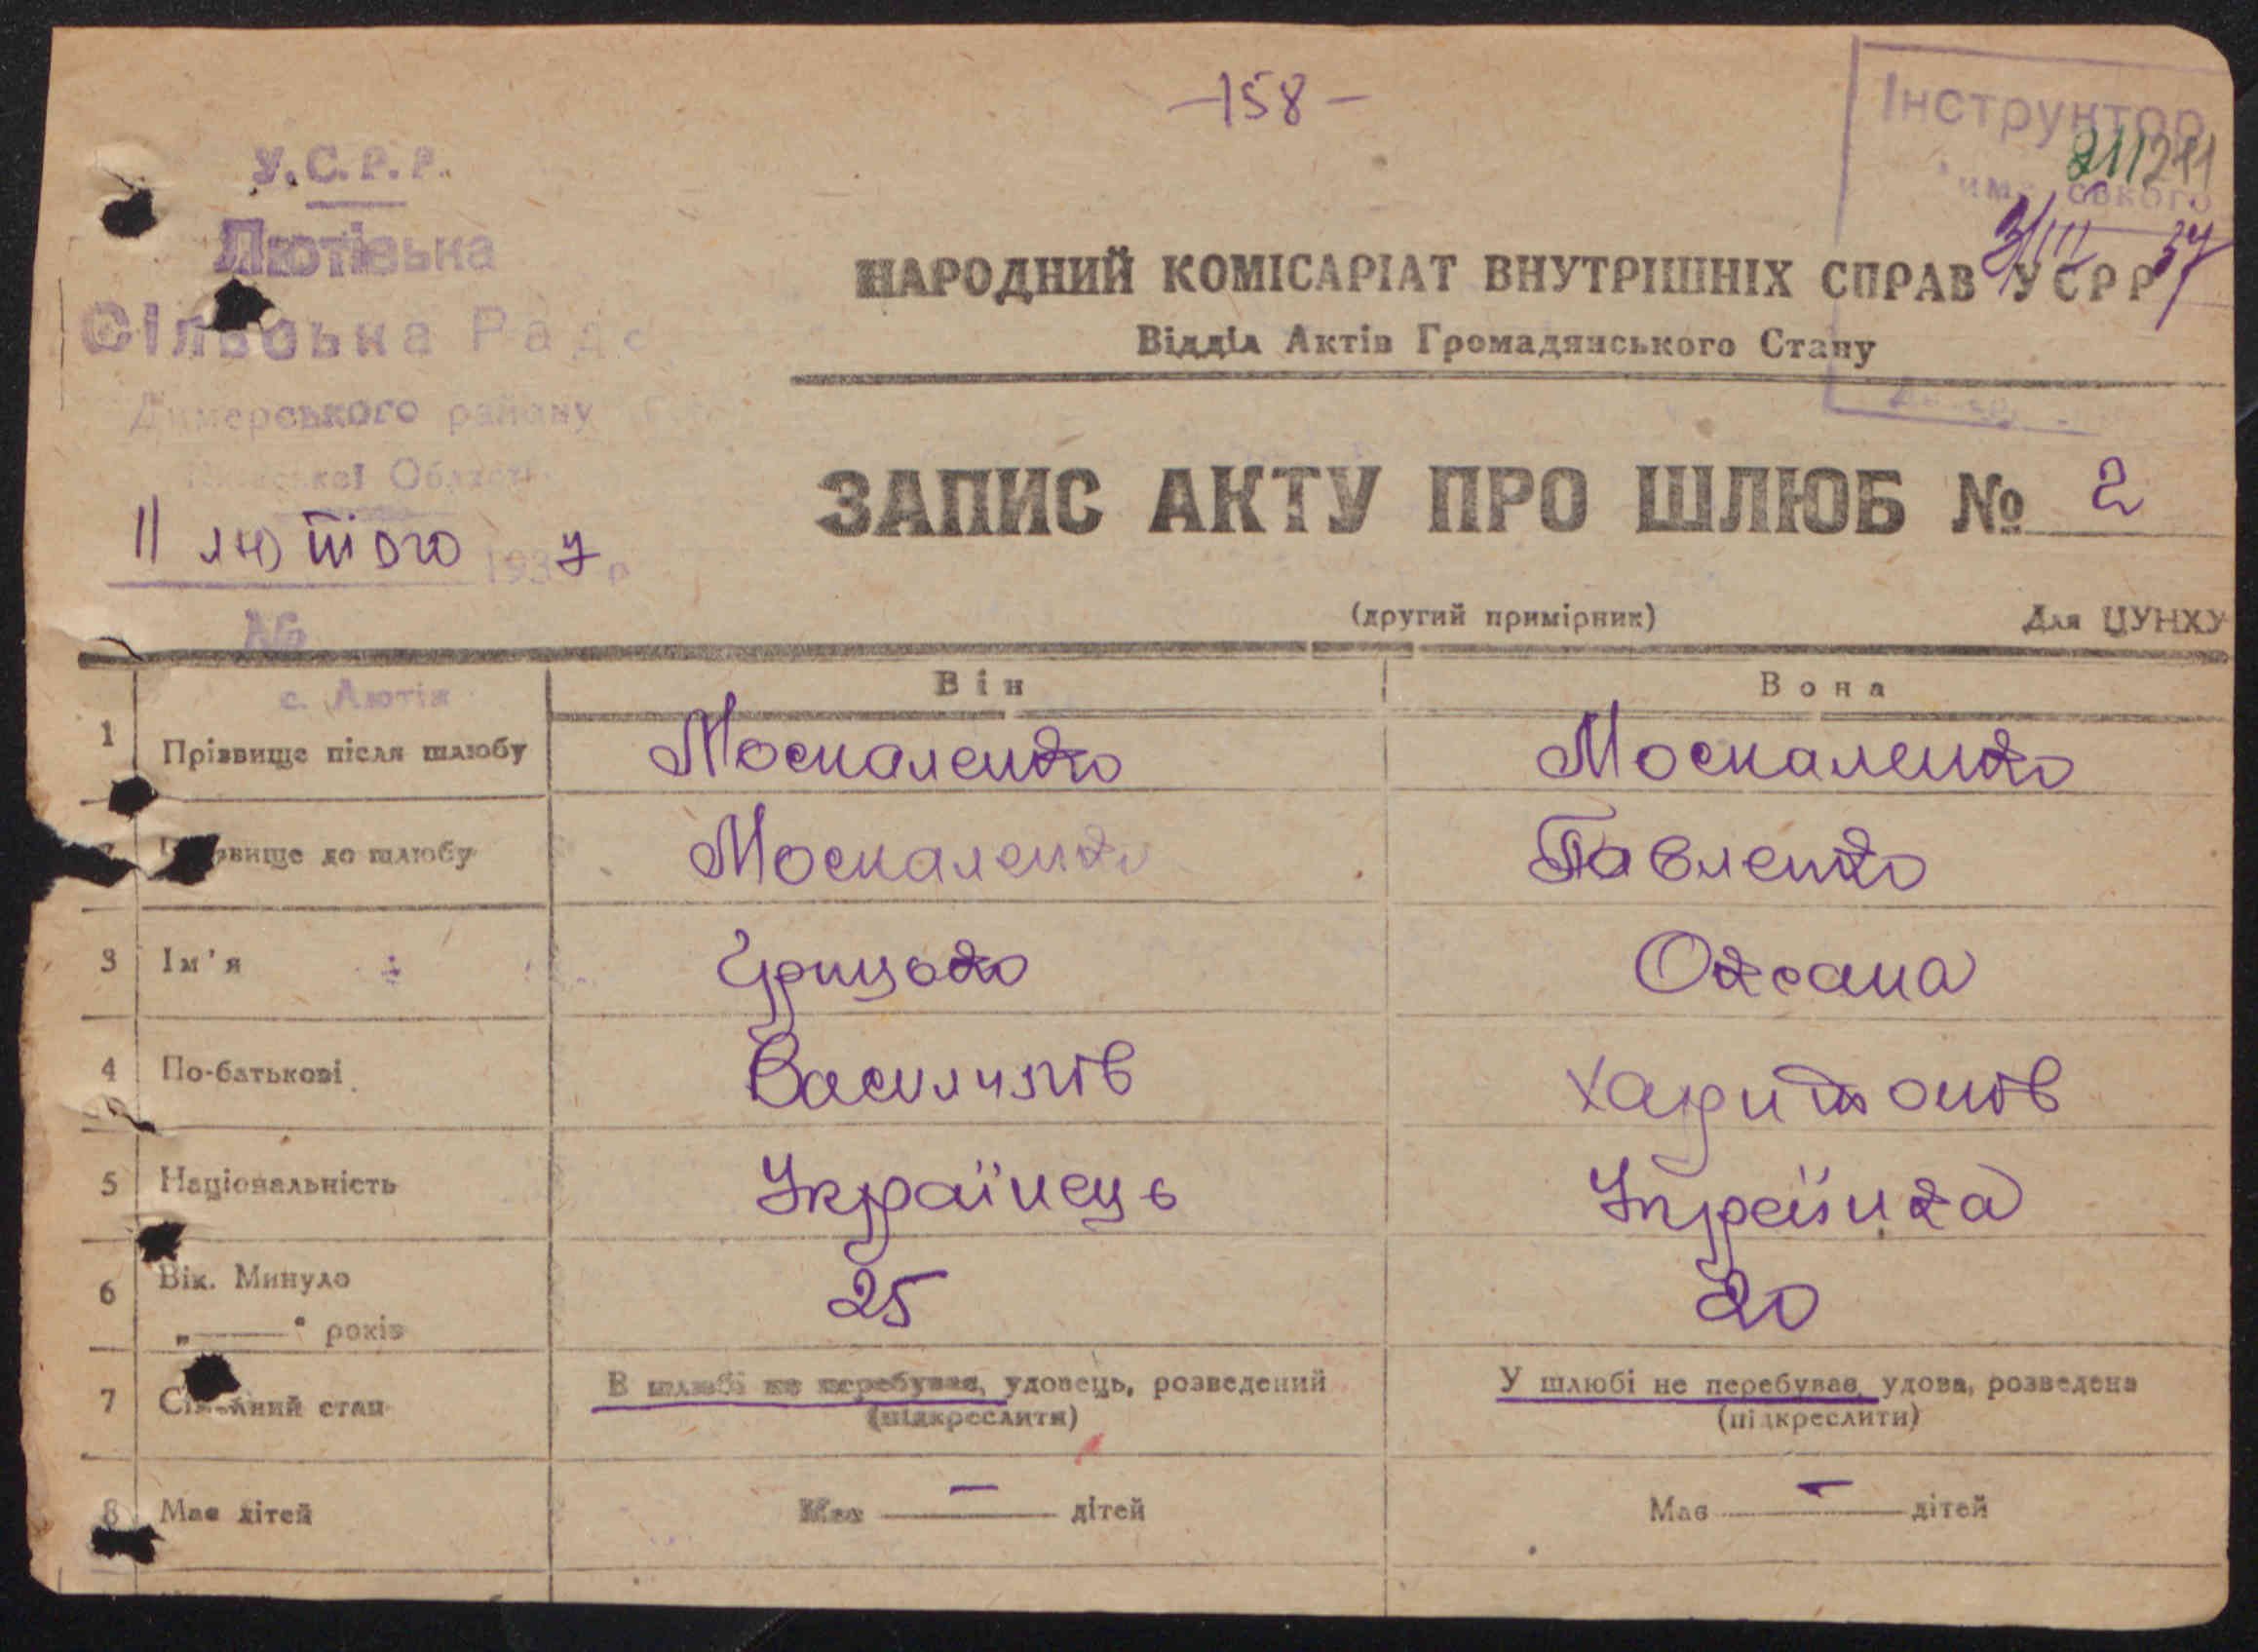 -158-
Інструктор
211 211
3/III 37
У.С.Р.Р.
Лютівська
Сільська Рада
Димерського району
Київської Області
11 лютого 1937 р
№
с. Лютіж
НАРОДНИЙ КОМІСАРІАТ ВНУТРІШНІХ СПРАВ УСРР
Відділ Актів Громадянського Стану
ЗАПИС АКТУ ПРО ШЛЮБ № 2
(другий примірник) Для ЦУНХУ
Він Вона
1 Прізвище після шлюбу Москаленко Москаленко
2 Прізвище до шлюбу Москаленко Павленко
3 Ім'я Грицько Оксана
4 По-батькові Васильків Харитонів
5 Національність Українець Українка
6 Вік. Минуло 25 20
„——“ років
7 Сімейний стан В шлюбі не перебував, удовець, розведений У шлюбі не перебував, удова, розведена
(підкреслити) (підкреслити)
8 Має дітей Має — дітей Має — дітей